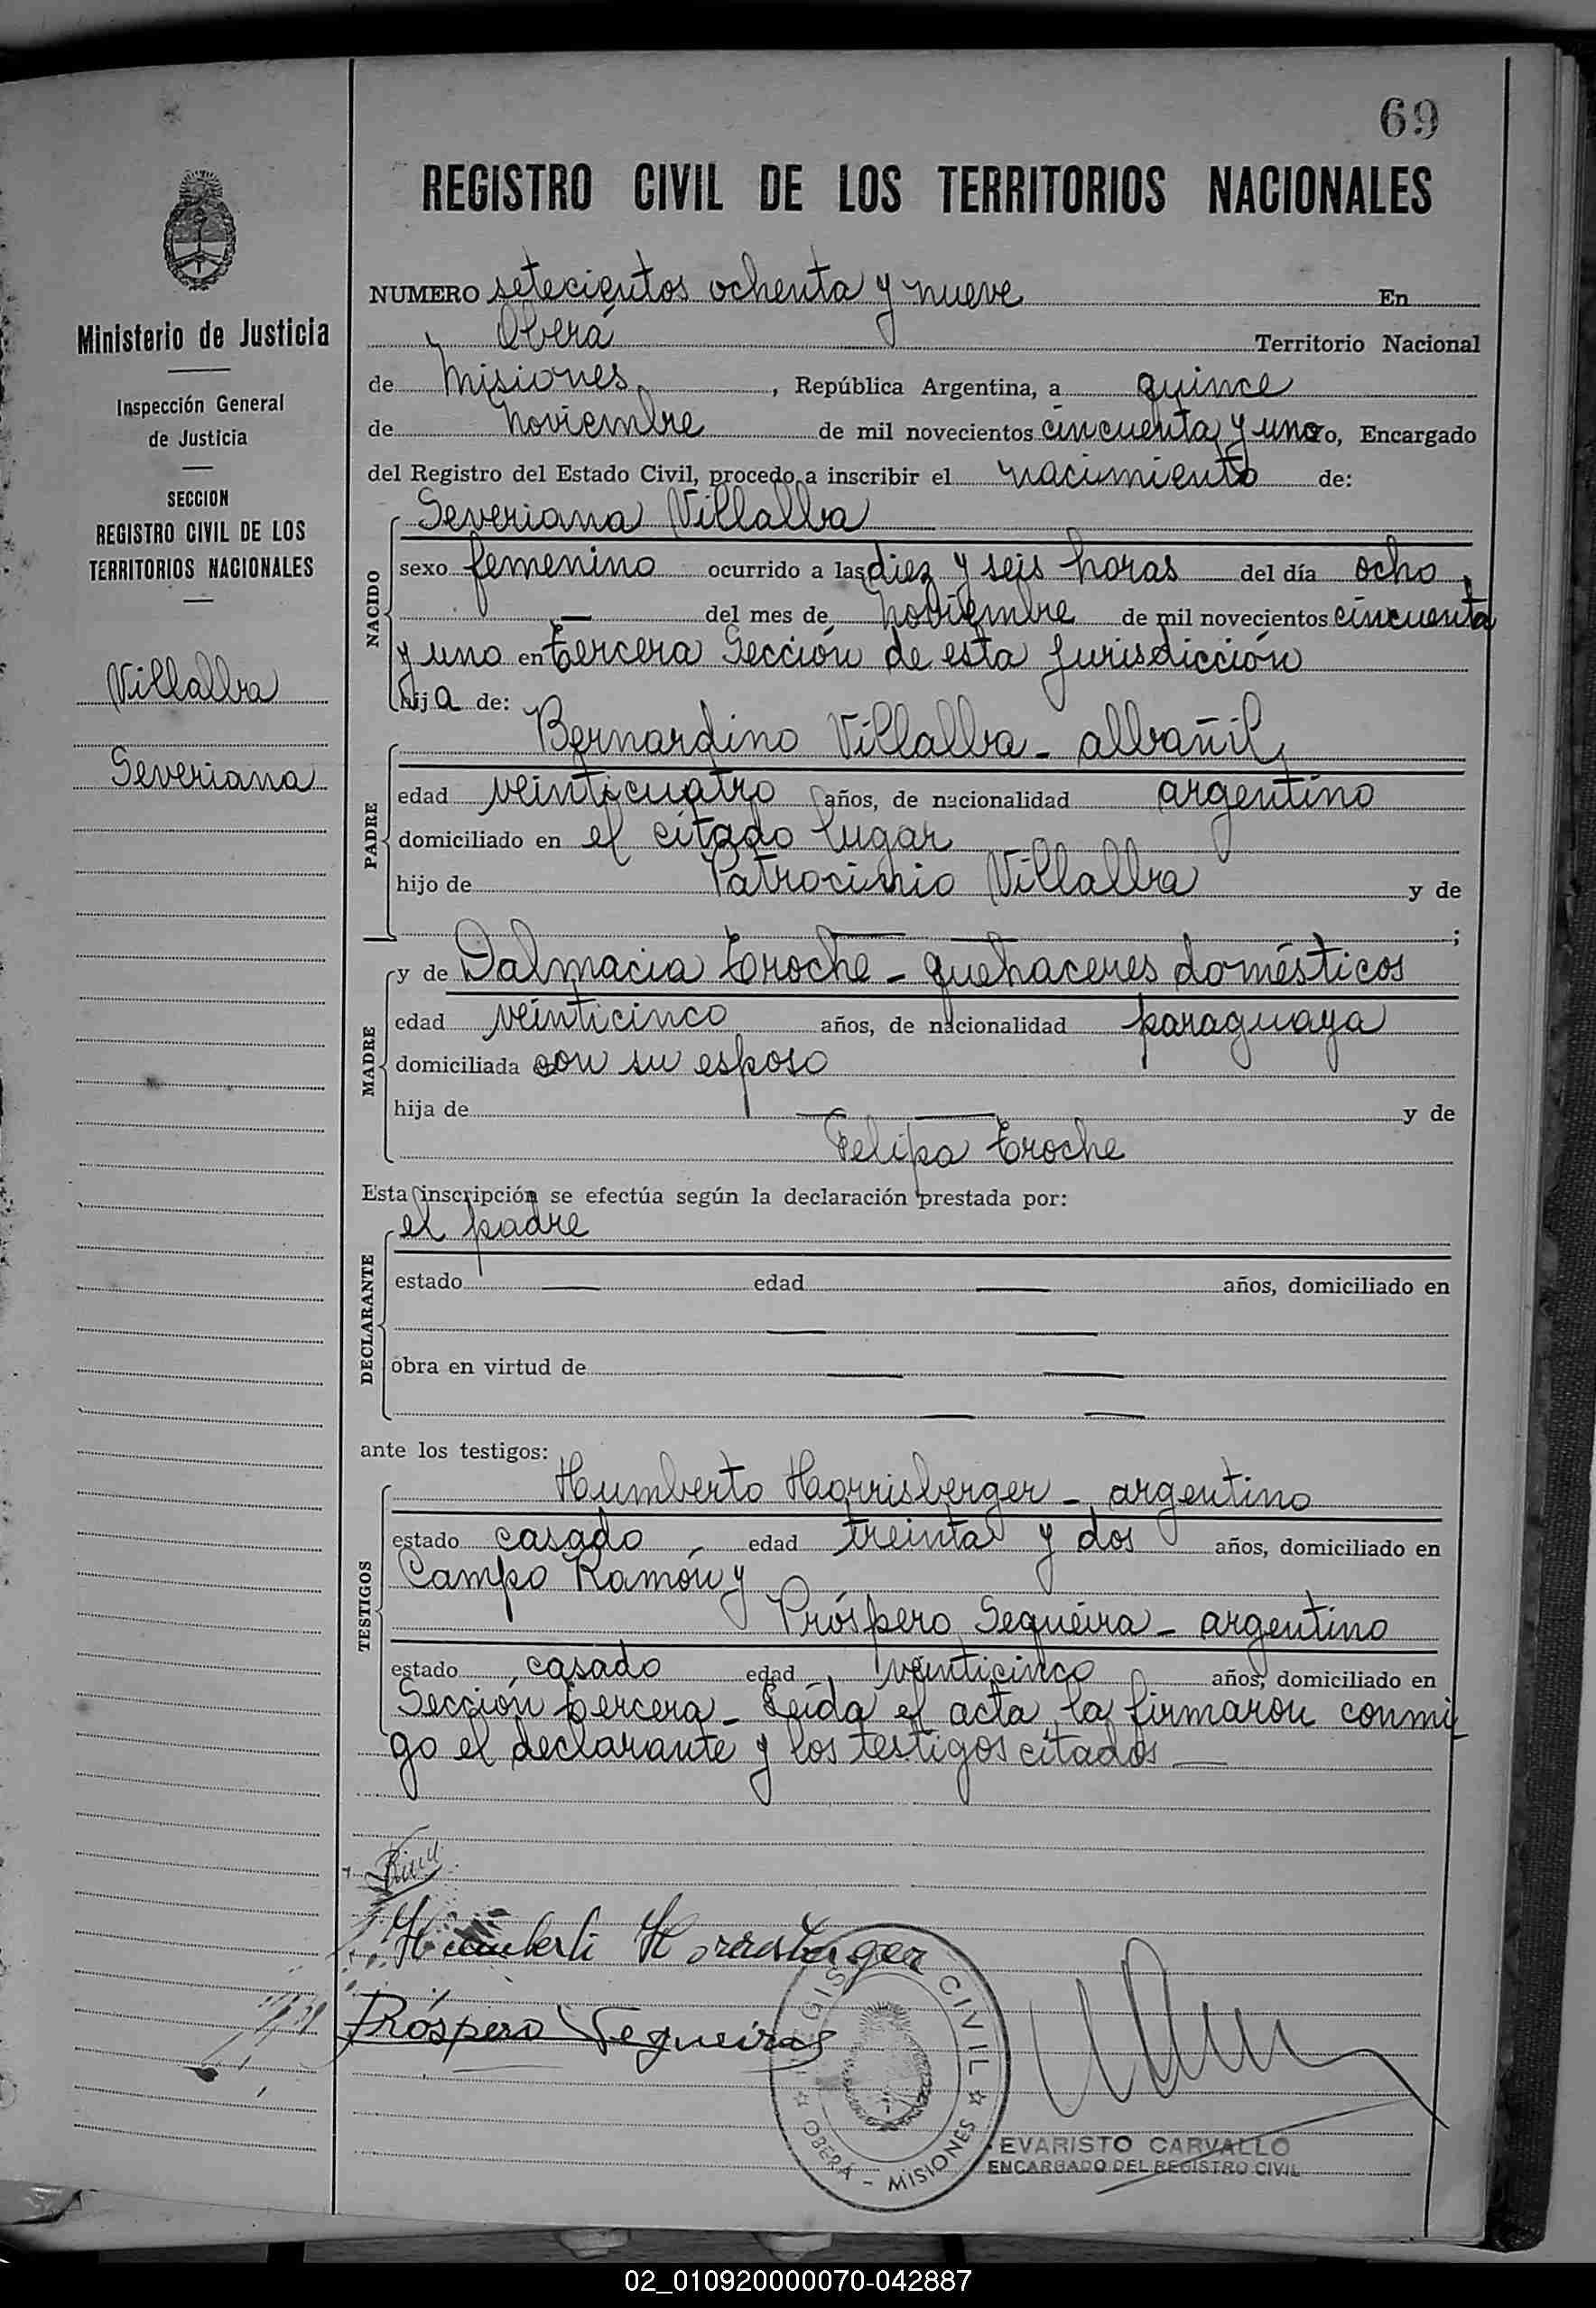 69
REGISTRO CIVIL DE LOS TERRITORIOS NACIONALES
Ministerio de Justicia
Inspección General
de Justicia
SECCION
REGISTRO CIVIL DE LOS
TERRITORIOS NACIONALES
Villalba
Severiana
NUMERO setecientos ochenta y nueve En
Oberá Territorio Nacional
de Misiones, República Argentina, a quince
de Noviembre de mil novecientos cincuenta y uno yo, Encargado
del Registro del Estado Civil, procedo a inscribir el nacimiento de:
NACIDO
Severiana Villalba
sexo femenino ocurrido a las diez y seis horas del día ocho,
— del mes de Noviembre de mil novecientos cincuenta
y uno en tercera Sección de esta jurisdicción
hija de:
PADRE
Bernardino Villalba - albañil,
edad veinticuatro años, de nacionalidad argentino
domiciliado en el citado lugar
hijo de Patrocinio Villalba y de
— — ;
MADRE
y de Dalmacia Troche - quehaceres domésticos
edad veinticinco años, de nacionalidad paraguaya
domiciliada con su esposo
hija de — — y de
Felipa Troche
Esta inscripción se efectúa según la declaración prestada por:
DECLARANTE
el padre
estado — edad — años, domiciliado en
— —
obra en virtud de — —
— —
ante los testigos:
TESTIGOS
Humberto Harrisberger - argentino
estado casado, edad treinta y dos años, domiciliado en
Campo Ramón y
Próspero Sequeira - argentino
estado casado edad veinticinco años, domiciliado en
Sección tercera - Leída el acta, la firmaron conmi
go el declarante y los testigos citados —
Próspero Sequeira
REGISTRO CIVIL
☆ OBERÁ - MISIONES ☆
EVARISTO CARVALLO
ENCARGADO DEL REGISTRO CIVIL
02_010920000070-042887